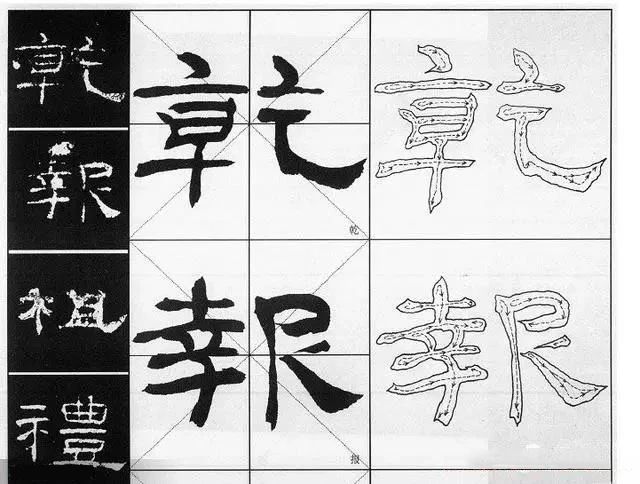 乾
報
祖
禮
乾 乾
乾
報 報
报